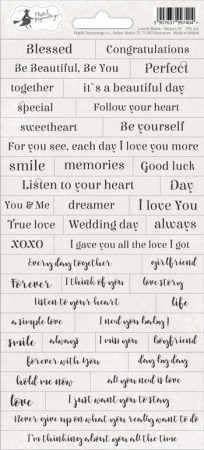 5 907637 997404 >
Blessed Congratulations
Be Beautiful, Be You Perfect
together it's a beautiful day
special Follow your heart
sweetheart Be yourself
For you see, each day I love you more
smile memories Good luck
Listen to your heart Day
You & Me dreamer I love You
True love Wedding day always
XOXO I gave you all the love I got
Every day together girlfriend
Forever I think of you love story
listen to your heart life
a simple love I need you baby!
smile always I miss you boyfriend
forever with You day by day
hold me now all you need is love
love I just want you to stay
Never give up on what you really want to do
I'm thinking about you all the time